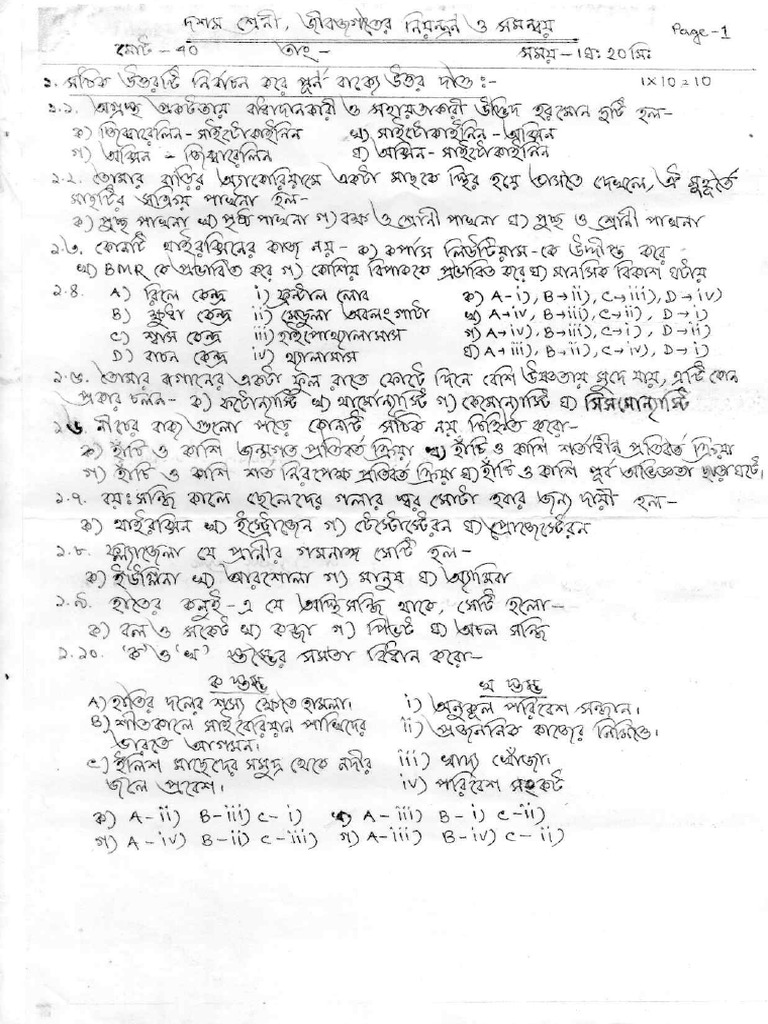 দশম শ্রেনী, জীবজগতের নিয়ন্ত্রন ও সমন্বয়
Page-1
মোট - ৭০ তাং - সময় - ১ঘ: ২০মি:
১. সঠিক উত্তরটি নির্বাচন করে পূর্ন বাক্যে উত্তর দাও :- 1×10=10
১.১. অগ্রস্থ প্রকটতায় বাধাদানকারী ও সহায়তাকারী উদ্ভিদ হরমোন দুটি হল-
ক) জিব্বারেলিন - সাইটোকাইনিন খ) সাইটোকাইনিন - অক্সিন
গ) অক্সিন - জিব্বারেলিন ঘ) অক্সিন - সাইটোকাইনিন
১.২. তোমার বাড়ির অ্যাকোরিয়ামে একটা মাছকে স্থির হয়ে ভাসতে দেখলে, ঐ মুহূর্তে
মাছটির সক্রিয় পাখনা হল-
ক) পুচ্ছ পাখনা খ) পৃষ্ঠ পাখনা গ) বক্ষ ও শ্রোনী পাখনা ঘ) পুচ্ছ ও শ্রোনী পাখনা
১.৩. কোনটি থাইরক্সিনের কাজ নয় - ক) কর্পাস লিউটিয়াস-কে উদ্দীপ্ত করে
খ) BMR কে প্রভাবিত করে গ) কোশিয় বিপাককে প্রভাবিত করে ঘ) মানসিক বিকাশ ঘটায়
১.৪. A) রিলে কেন্দ্র i) ফ্রন্টাল লোব ক) A-i), B→ii), C→iii), D→iv)
B) ক্ষুধা কেন্দ্র ii) মেডুলা অবলংগাটা খ) A→iv, B→iii), C→ii), D→i)
C) শ্বাস কেন্দ্র iii) হাইপোথ্যালামাস গ) A→iv), B→iii), C→i), D→ii)
D) বাচন কেন্দ্র iv) থ্যালামাস ঘ) A→iii), B→ii), C→iv), D→i)
১.৫. তোমার বাগানের একটা ফুল রাতে ফোটে দিনে বেশি উষ্ণতায় মুদে যায়, এটি কোন
প্রকার চলন- ক) ফটোন্যাস্টি খ) থার্মোন্যাস্টি গ) কেমোন্যাস্টি ঘ) সিসমোন্যাস্টি
১.৬. নীচের বাক্য গুলো পড়ে কোনটি সঠিক নয় চিহ্নিত করো-
ক) হাঁচি ও কাশি জন্মগত প্রতিবর্ত ক্রিয়া খ) হাঁচি ও কাশি শর্তাধীন প্রতিবর্ত ক্রিয়া
গ) হাঁচি ও কাশি শর্ত নিরপেক্ষ প্রতিবর্ত ক্রিয়া ঘ) হাঁচি ও কাশি পূর্ব অভিজ্ঞতা ছাড়া ঘটে।
১.৭. বয়ঃসন্ধি কালে ছেলেদের গলার স্বর মোটা হবার জন্য দায়ী হল-
ক) থাইরক্সিন খ) ইস্ট্রোজেন গ) টেস্টোস্টেরন ঘ) প্রোজেস্টেরন
১.৮. ফ্ল্যাজেলা যে প্রানীর গমনাঙ্গ সেটি হল-
ক) ইউগ্লিনা খ) আরশোলা গ) মানুষ ঘ) অ্যামিবা
১.৯. হাতের কনুই-এ যে অস্থিসন্ধি থাকে, সেটি হলো-
ক) বল ও সকেট খ) কব্জা গ) পিভট ঘ) অচল সন্ধি
১.১০. 'ক' ও 'খ' স্তম্ভের সমতা বিধান করো-
ক স্তম্ভ খ স্তম্ভ
A) হাতির দলের শস্য ক্ষেতে হামলা। i) অনুকূল পরিবেশ সন্ধান।
B) শীতকালে সাইবেরিয়ান পাখিদের ii) প্রজননিক কাজের নিমিত্তে।
ভারতে আগমন।
C) ইলিশ মাছেদের সমুদ্র থেকে নদীর iii) খাদ্য খোঁজা।
জলে প্রবেশ। iv) পরিবেশ সংকট
ক) A-ii) B-iii) C-i) খ) A-iii) B-i) C-ii)
গ) A-iv) B-ii) C-iii) গ) A-iii) B-iv) C-ii)